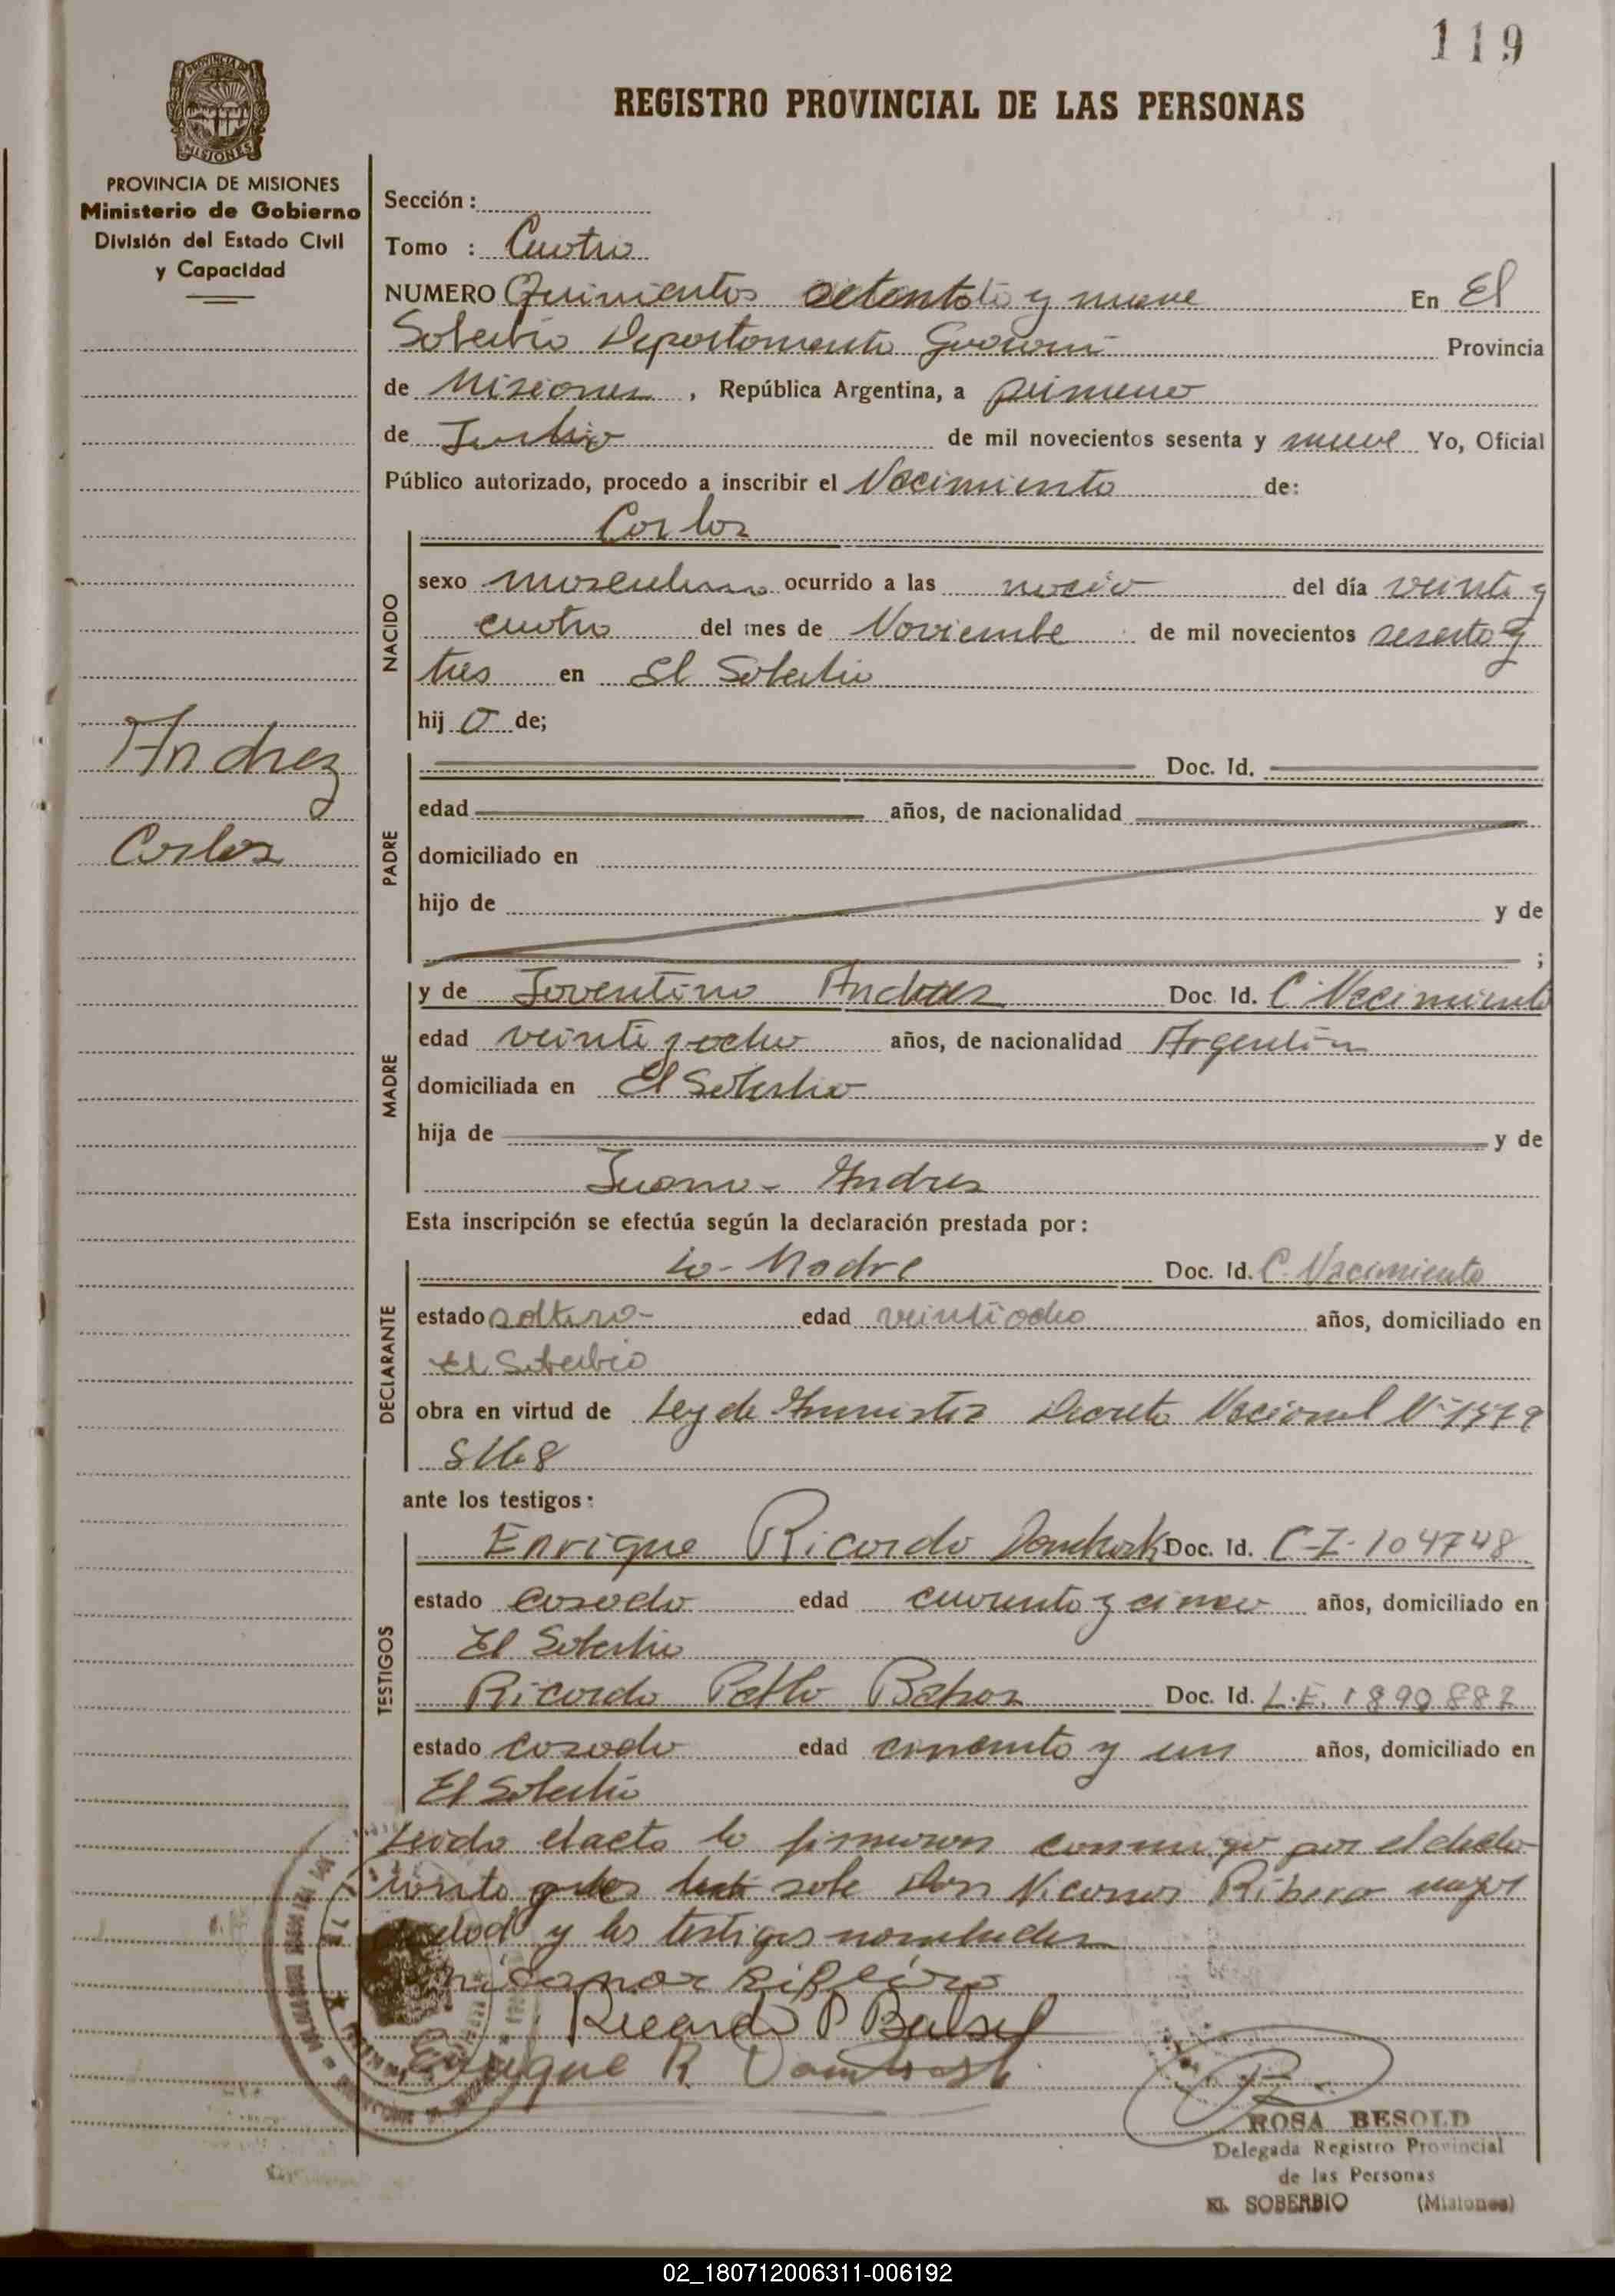 119
REGISTRO PROVINCIAL DE LAS PERSONAS
MISIONES
PROVINCIA DE MISIONES
Ministerio de Gobierno
División del Estado Civil
y Capacidad
Sección :
Tomo : Cuatro
NUMERO Quinientos y nueve En El
Soberbio Departamento Guaraní Provincia
de Misiones , República Argentina, a primero
de de mil novecientos sesenta y nueve Yo, Oficial
Público autorizado, procedo a inscribir el Nacimiento de:
Carlos
NACIDO
sexo masculino ocurrido a las del día veinte y
cuatro del mes de Noviembre de mil novecientos sesenta y
tres en El Soberbio
hij o de;
Andrez
Carlos
PADRE
Doc. Id.
edad años, de nacionalidad
domiciliado en
hijo de y de
;
MADRE
y de Joventina Doc. Id. C. Nacimiento
edad veinti y ocho años, de nacionalidad Argentina
domiciliada en El Soberbio
hija de y de
Juana Andres
Esta inscripción se efectúa según la declaración prestada por :
DECLARANTE
la Madre Doc. Id. C. Nacimiento
estado soltera edad veintiocho años, domiciliado en
El Soberbio
obra en virtud de Ley de Decreto Nacional Nº
ante los testigos :
TESTIGOS
Enrique Ricardo Doc. Id. C-I-104748
estado casado edad cuarenta y cinco años, domiciliado en
El Soberbio
Ricardo Pablo Doc. Id. L.E. 1890887
estado casado edad y un años, domiciliado en
El Soberbio
Leida el acta la firmaron conmigo por el decla
rante sole Don Nicanor Ribero mayor
edad y los testigos nombrados
nicanor Ribeiro
Ricardo P
Enrique R
ROSA BESOLD
Delegada Registro Provincial
de las Personas
EL SOBERBIO (Misiones)
02_180712006311-006192